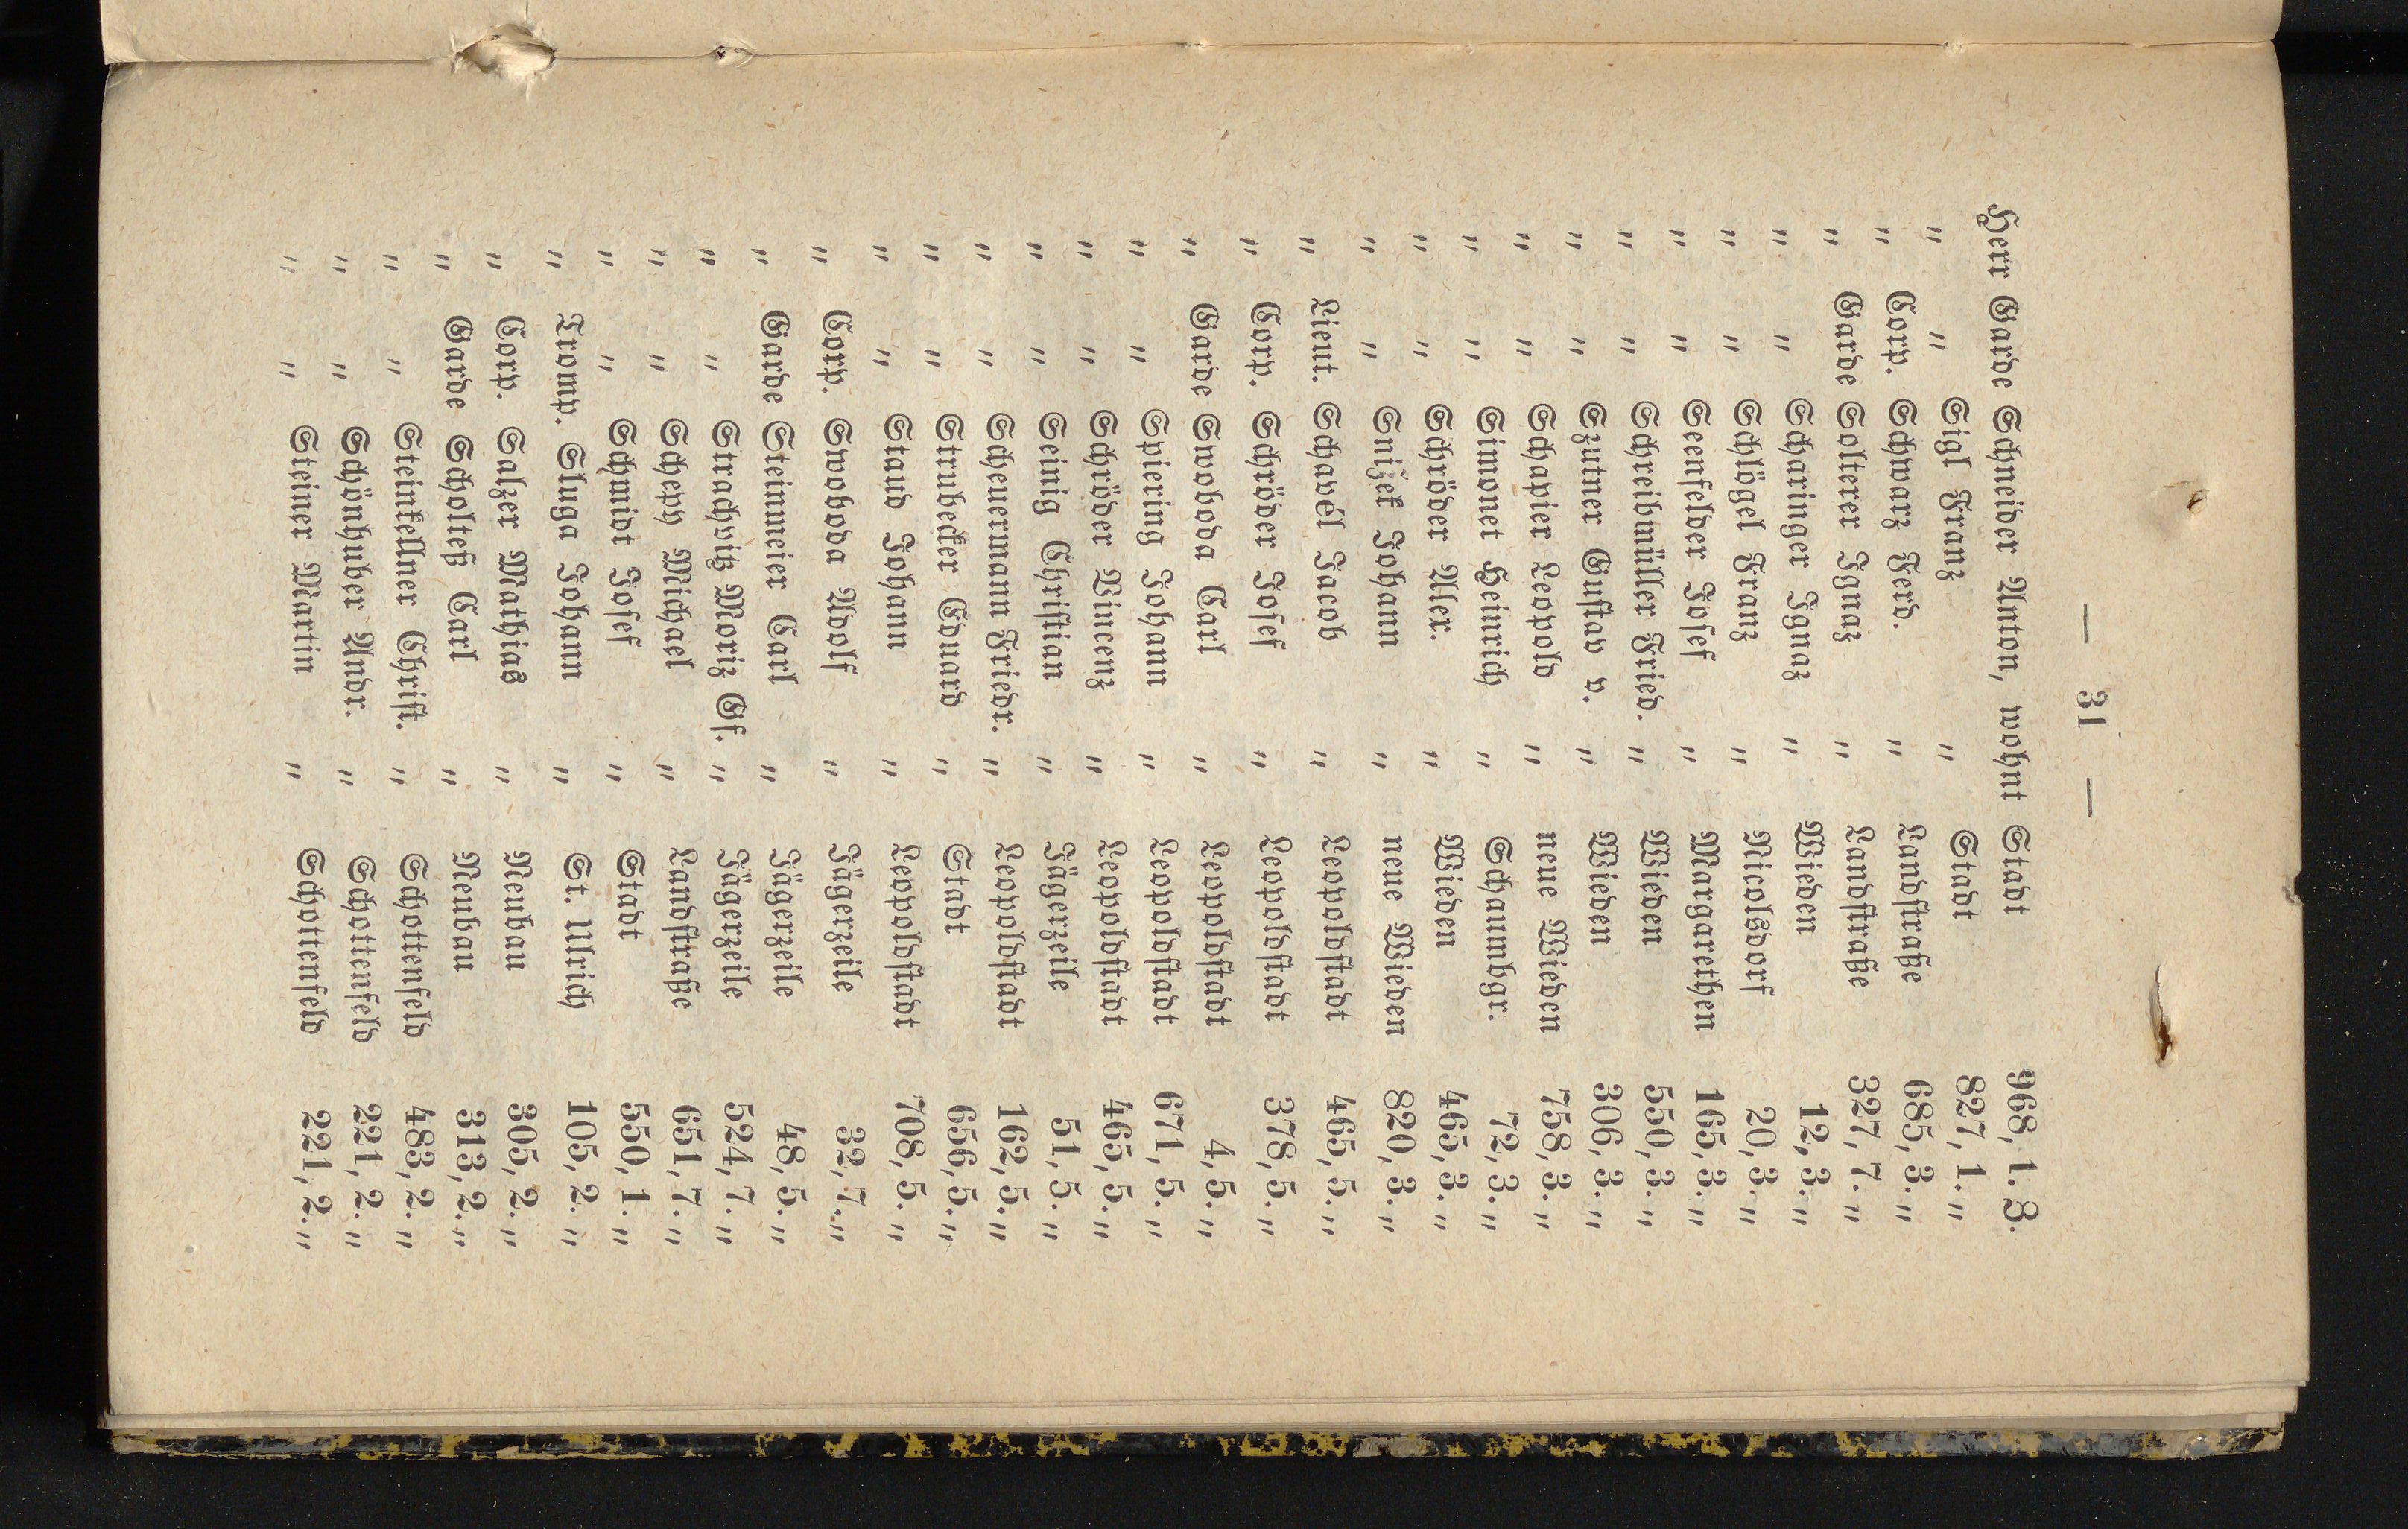 — 31 —
Herr Garde Schneider Anton, wohnt Stadt 968, 1. Z.
" " Sigl Franz " Stadt 827, 1. "
" Corp. Schwarz Ferd. " Landstraße 685, 3. "
" Garde Solterer Ignaz " Landstraße 327, 7. "
" " Scharinger Ignaz " Wieden 12, 3. "
" " Schlögel Franz " Nicolsdorf 20, 3. "
" " Seenfelder Josef " Margarethen 165, 3. "
" " Schreibmüller Fried. " Wieden 550, 3. "
" " Szutner Gustav v. " Wieden 306, 3. "
" " Schapier Leopold " neue Wieden 758, 3. "
" " Simonet Heinrich " Schaumbgr. 72, 3. "
" " Schröder Alex. " Wieden 465, 3. "
" " Snižek Johann " neue Wieden 820, 3. "
" Lieut. Schavél Jacob " Leopoldstadt 465, 5. "
" Corp. Schröder Josef " Leopoldstadt 378, 5. "
" Garde Swoboda Carl " Leopoldstadt 4, 5. "
" " Spiering Johann " Leopoldstadt 671, 5. "
" " Schröder Vincenz " Leopoldstadt 465, 5. "
" " Seinig Christian " Jägerzeile 51, 5. "
" " Scheuermann Friedr. " Leopoldstadt 162, 5. "
" " Strubecker Eduard " Stadt 656, 5. "
" " Staub Johann " Leopoldstadt 708, 5. "
" Corp. Swoboda Adolf " Jägerzeile 32, 7. "
" Garde Steinmeier Carl " Jägerzeile 48, 5. "
" " Strachvitz Moriz Gf. " Jägerzeile 524, 7. "
" " Schepy Michael " Landstraße 651, 7. "
" " Schmidt Josef " Stadt 550, 1. "
" Tromp. Sluga Johann " St. Ulrich 105, 2. "
" Corp. Salzer Mathias " Neubau 305, 2. "
" Garde Scholteß Carl " Neubau 313, 2. "
" " Steinkellner Christ. " Schottenfeld 483, 2. "
" " Schönhuber Andr. " Schottenfeld 221, 2. "
" " Steiner Martin " Schottenfeld 221, 2. "